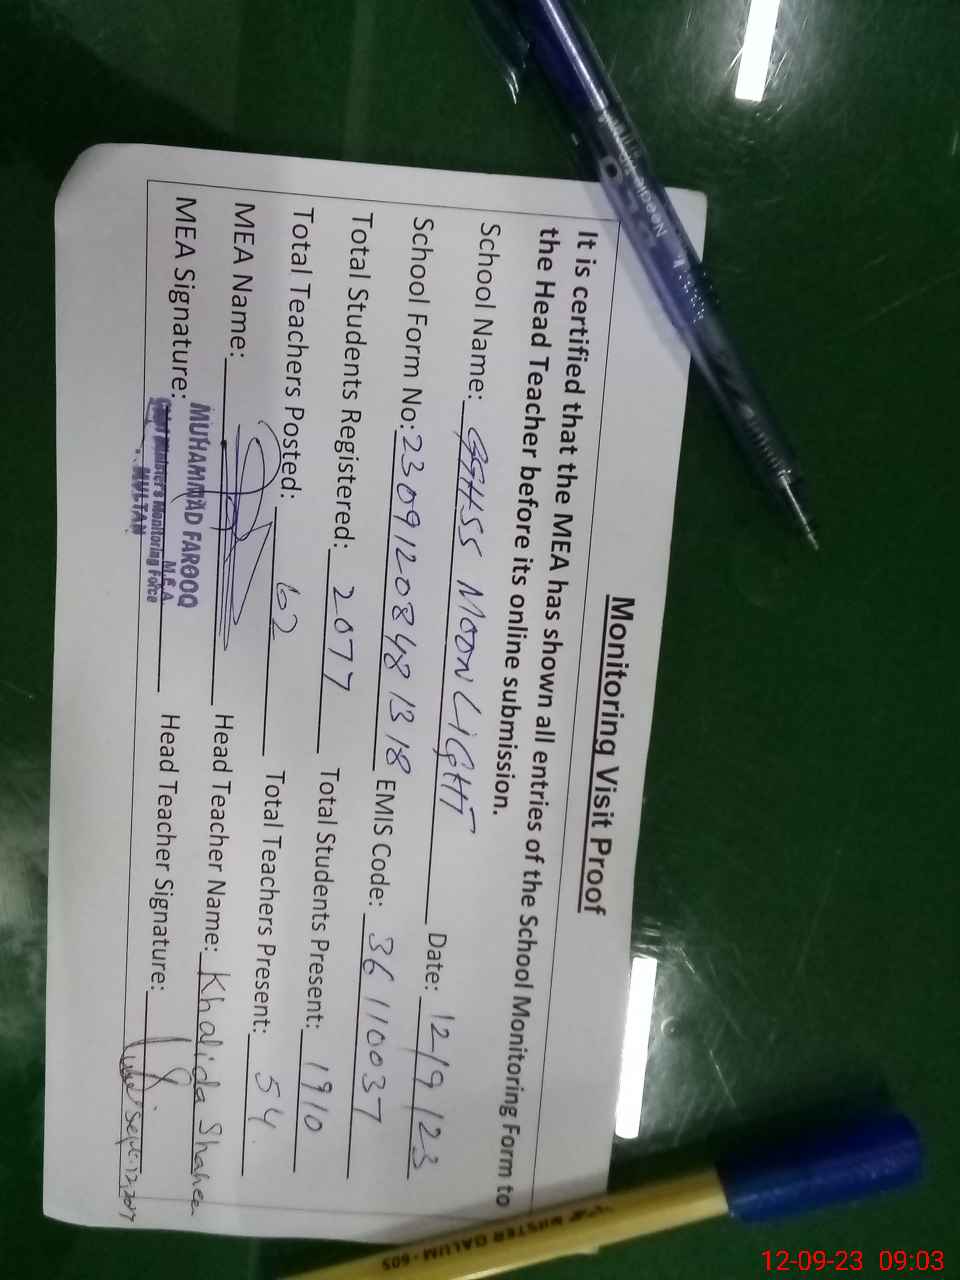 Monitoring Visit Proof
It is certified that the MEA has shown all entries of the School Monitoring Form to
the Head Teacher before its online submission.
School Name: GGHSS MOONLIGHT Date: 12/9/23
School Form No: 2309120848 1318 EMIS Code: 36110037
Total Students Registered: 2077 Total Students Present: 1910
Total Teachers Posted: 62 Total Teachers Present: 54
MEA Name: Head Teacher Name: Khalida Shaheen
MEA Signature: Head Teacher Signature:
MUHAMMAD FAROOQ
M.E.A
Chief Minister's Monitoring Force
MULTAN
Needle
12-09-23 09:03